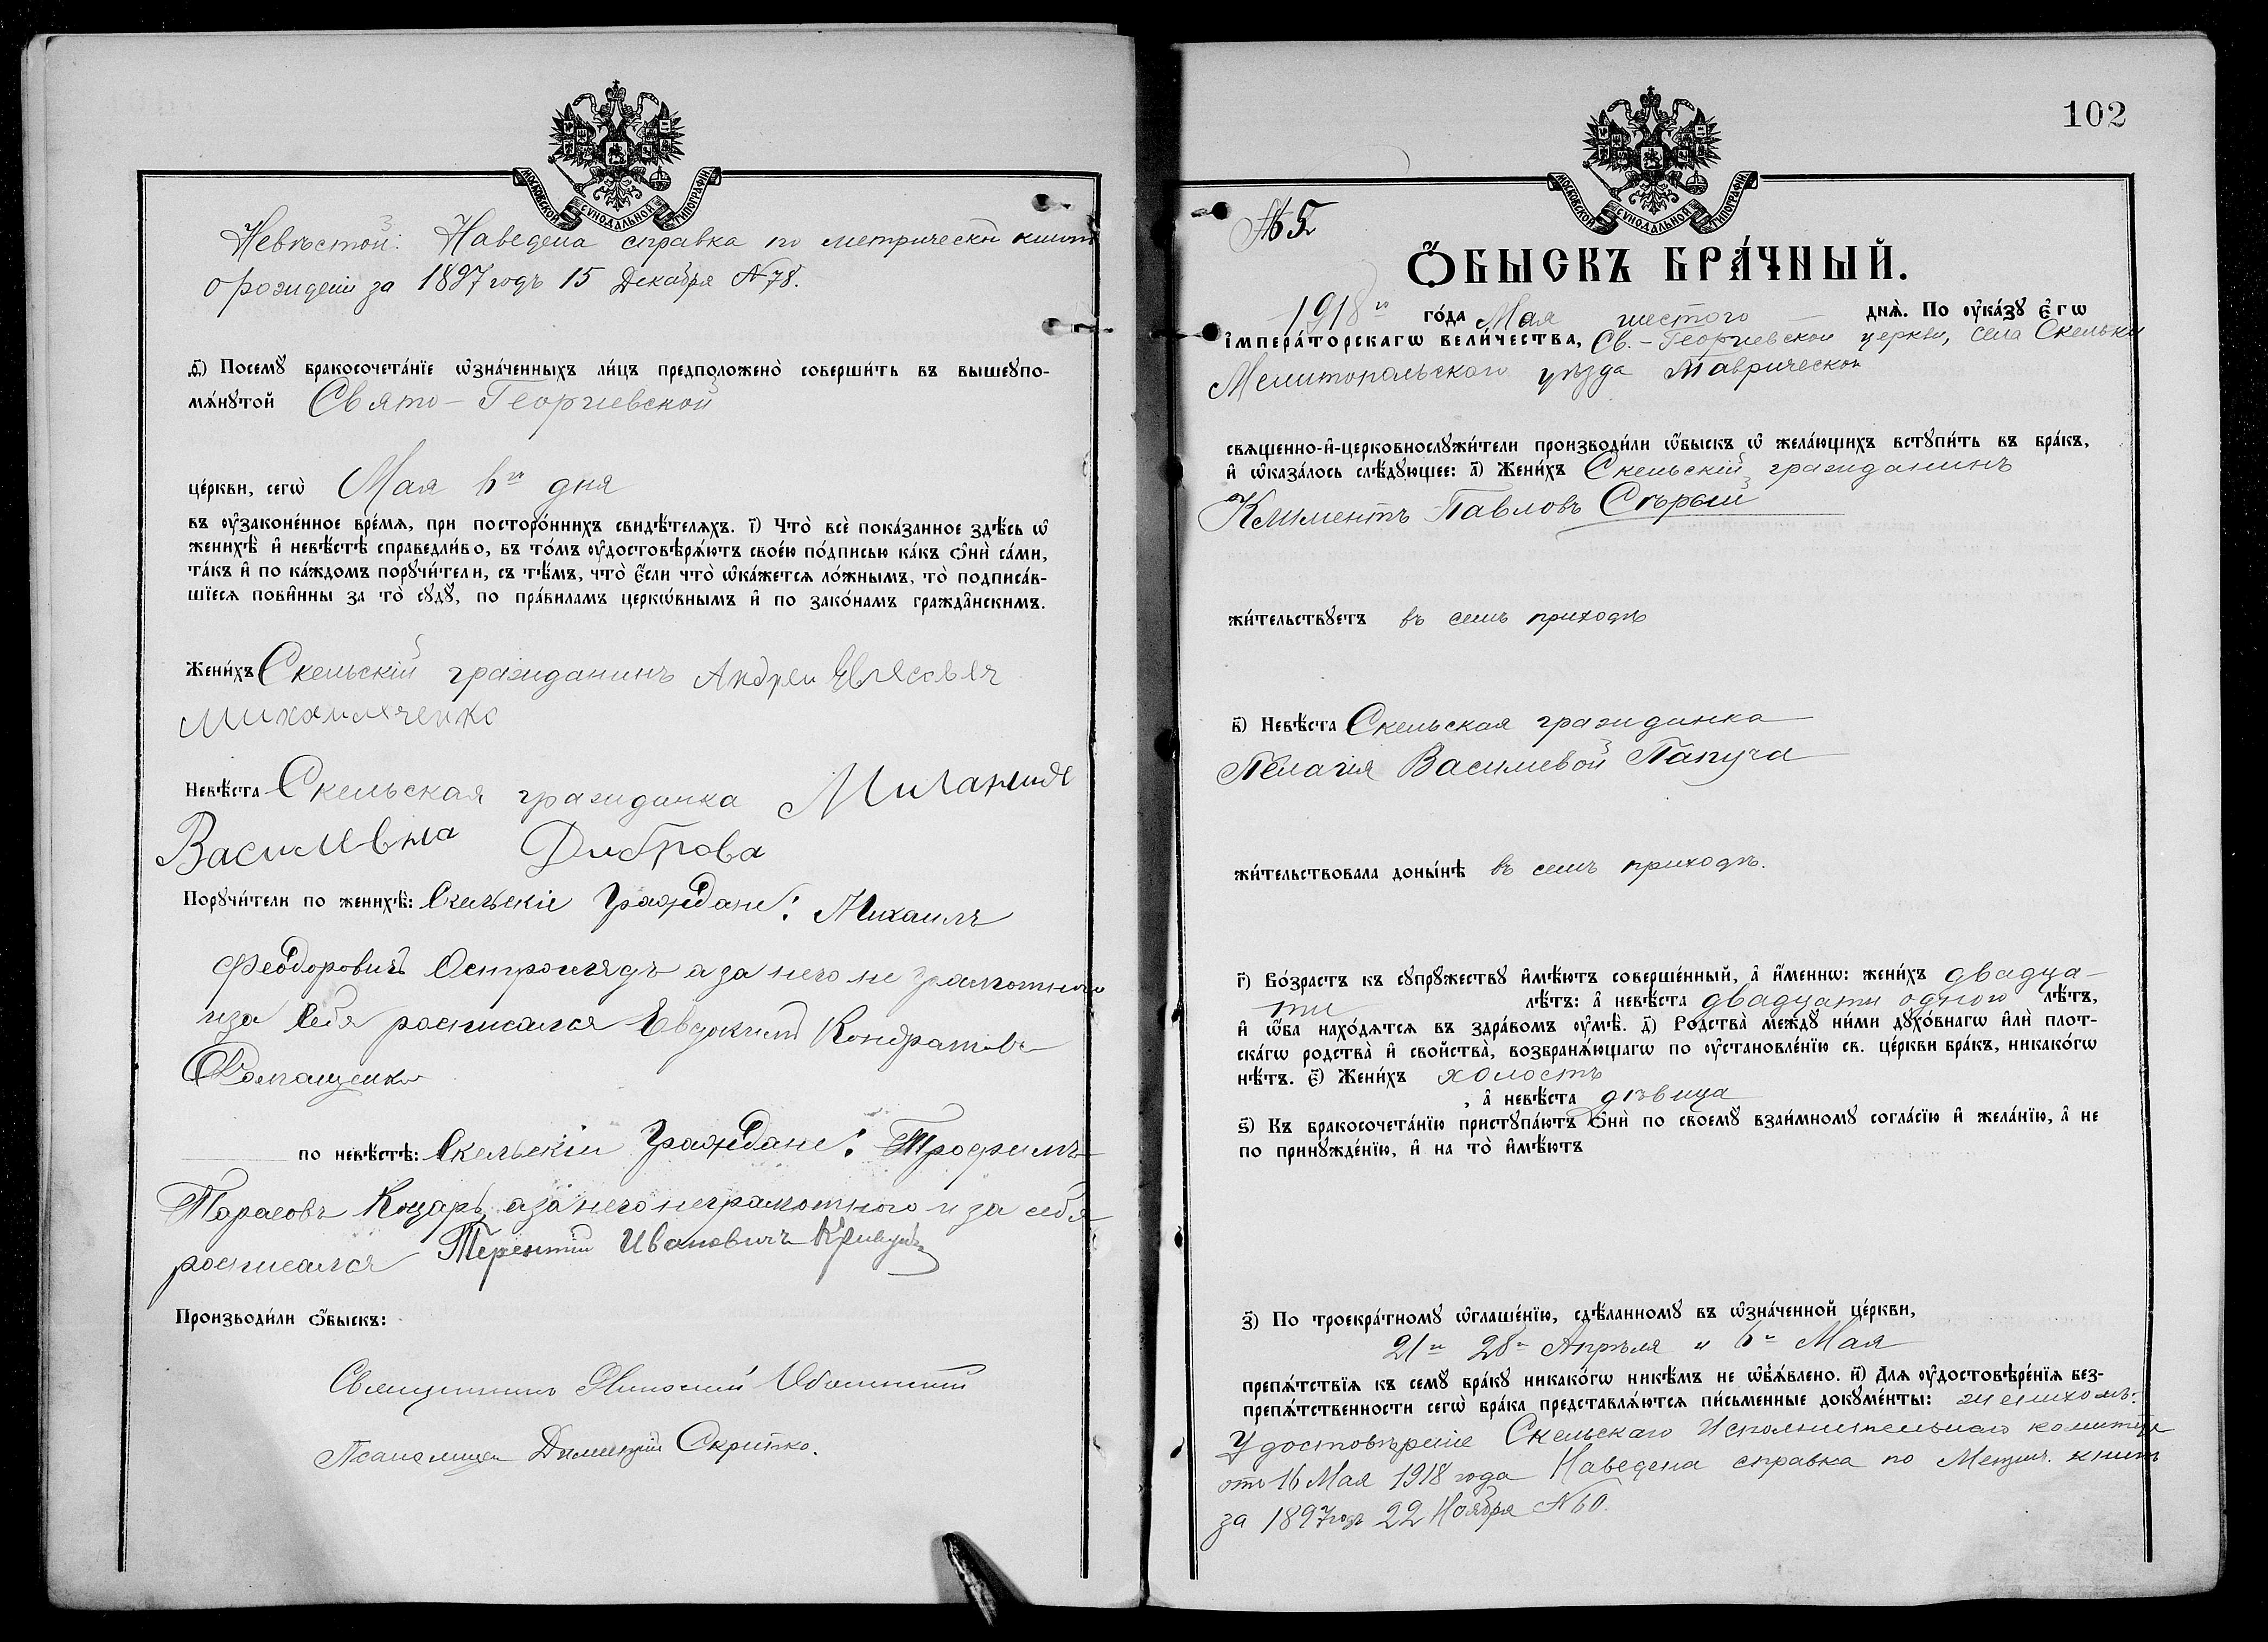 МОСКОВСКОЙ СѴНОДАЛЬНОЙ ТИПОГРАФІИ
Невѣстой: Наведена справка по метрической книгѣ
о рожденіи за 1897 годъ 15 Декабря №78.
д҃і) Посемꙋ бракосочета́нїе ѡ҆зна́ченныхъ ли́цъ предположено̀ соверши́ть въ вышеꙋпо-
мѧ́нꙋтой Свято-Георгіевской
це́ркви, сегѡ̀ Мая 6го дня
въ ᲂу҆законе́нное вре́мѧ, при посторо́ннихъ свидѣ́телѧхъ. і҃) Что̀ всѐ пока́занное здѣ́сь ѡ҆
женихѣ̀ и҆ невѣ́стѣ справедли́во, въ то́мъ ᲂу҆достовѣрѧ́ютъ свое́ю по́дписью ка́къ ѻ҆нѝ са́ми,
та́къ и҆ по ка́ждомъ порꙋчи́тели, съ тѣ́мъ, что̀ є҆́сли что̀ ѡ҆ка́жетсѧ ло́жнымъ, то̀ подписа́в-
шїесѧ пови́нны за то̀ сꙋдꙋ̀, по пра́виламъ церкѡ́внымъ и҆ по зако́намъ гражда́нскимъ.
Жени́хъ Скельскій гражданинъ Андреи Евлясович
Михаиличенко
Невѣ́ста Скельская гражданка Милания
Василивна Диброва
Порꙋчи́тели по женихѣ̀: Скельскіе Граждане: Михаилъ
Феодоровичъ Остроглядъ а за него не грамотного
и за себя росписался Евдокимъ Кондратовъ
Ромащенко
по невѣ́стѣ: Скельскіи Граждане: Трофимъ
Тарасовъ Коцарь, а за него неграмотного и за себя
росписался Терентій Ивановичъ Кривуць
Производи́ли ѻ҆́быскъ:
Священникъ
Псаломщикъ Димитрій Скрипко.
102
МОСКОВСКОЙ СѴНОДАЛЬНОЙ ТИПОГРАФІИ
№5
Ѻ҆́БЫСКЪ БРА́ЧНЫЙ.
1918го го́да Мая шестого днѧ̀. По ᲂу҆ка́зꙋ є҆гѡ̀
і҆мпера́торскагѡ вели́чества, Св.-Георгіевской церкви, села Скельки
Мелитопольскаго уѣзда Таврической
свѧщенно-и҆-церковнослꙋжи́тели производи́ли ѡ҆́быскъ ѡ҆ жела́ющихъ встꙋпи́ть въ бра́къ,
и҆ ѡ҆каза́лось слѣ́дꙋющее: а҃) Жени́хъ Скельскій гражданинъ
Климентъ Павловъ Сѣрый
жи́тельствꙋетъ въ семъ приходѣ
в҃) Невѣ́ста Скельская гражданка
Пелагія Василиевой Папуча
жи́тельствовала доны́нѣ въ семъ приходѣ.
г҃) Во́зрастъ къ сꙋпрꙋ́жествꙋ и҆мѣ́ютъ соверше́нный, а҆ и҆́меннѡ: жени́хъ двадца-
ти лѣ́тъ: а҆ невѣ́ста двадцати одного лѣ́тъ,
и҆ ѡ҆́ба нахо́дѧтсѧ въ здра́вомъ ᲂу҆мѣ̀. д҃) Родства̀ междꙋ̀ ни́ми дꙋхо́внагѡ и҆лѝ плот-
ска́гѡ родства̀ и҆ сво́йства, возбранѧ́ющагѡ по ᲂу҆становле́нїю св. це́ркви бра́къ, никако́гѡ
нѣ́тъ. є҃) Жени́хъ холостъ
, а҆ невѣ́ста дѣвица
ѕ҃) Къ бракосочета́нїю пристꙋпа́ютъ ѻ҆нѝ по своемꙋ̀ взаи́мномꙋ согла́сїю и҆ жела́нїю, а҆ не
по принꙋжде́нїю, и҆ на то̀ и҆мѣ́ютъ
з҃) По троекра́тномꙋ ѡ҆глаше́нїю, сдѣ́ланномꙋ въ ѡ҆зна́ченной це́ркви,
21го 28го Апрѣля и 6го Мая
препѧ́тствїѧ къ семꙋ̀ бра́кꙋ никако́гѡ никѣ́мъ не ѡ҆б̾ѧ́влено. и҃) Длѧ ᲂу҆достовѣре́нїѧ без-
препѧ́тственности сегѡ̀ бра́ка представлѧ́ютсѧ пи́сьменные докꙋме́нты: женихомъ:
Удостовѣреніе Скельскаго Исполнительнаго комитета
отъ 16 Мая 1918 года Наведена справка по Метрич. книгѣ
за 1897 годъ 22 Ноября №60.